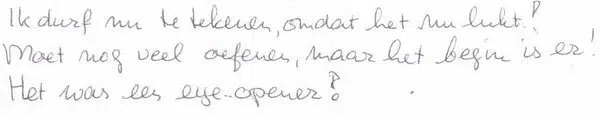 Ik durf nu te tekenen, omdat het nu lukt!
Moet nog veel oefenen, maar het begin is er!
Het was een eye-opener!